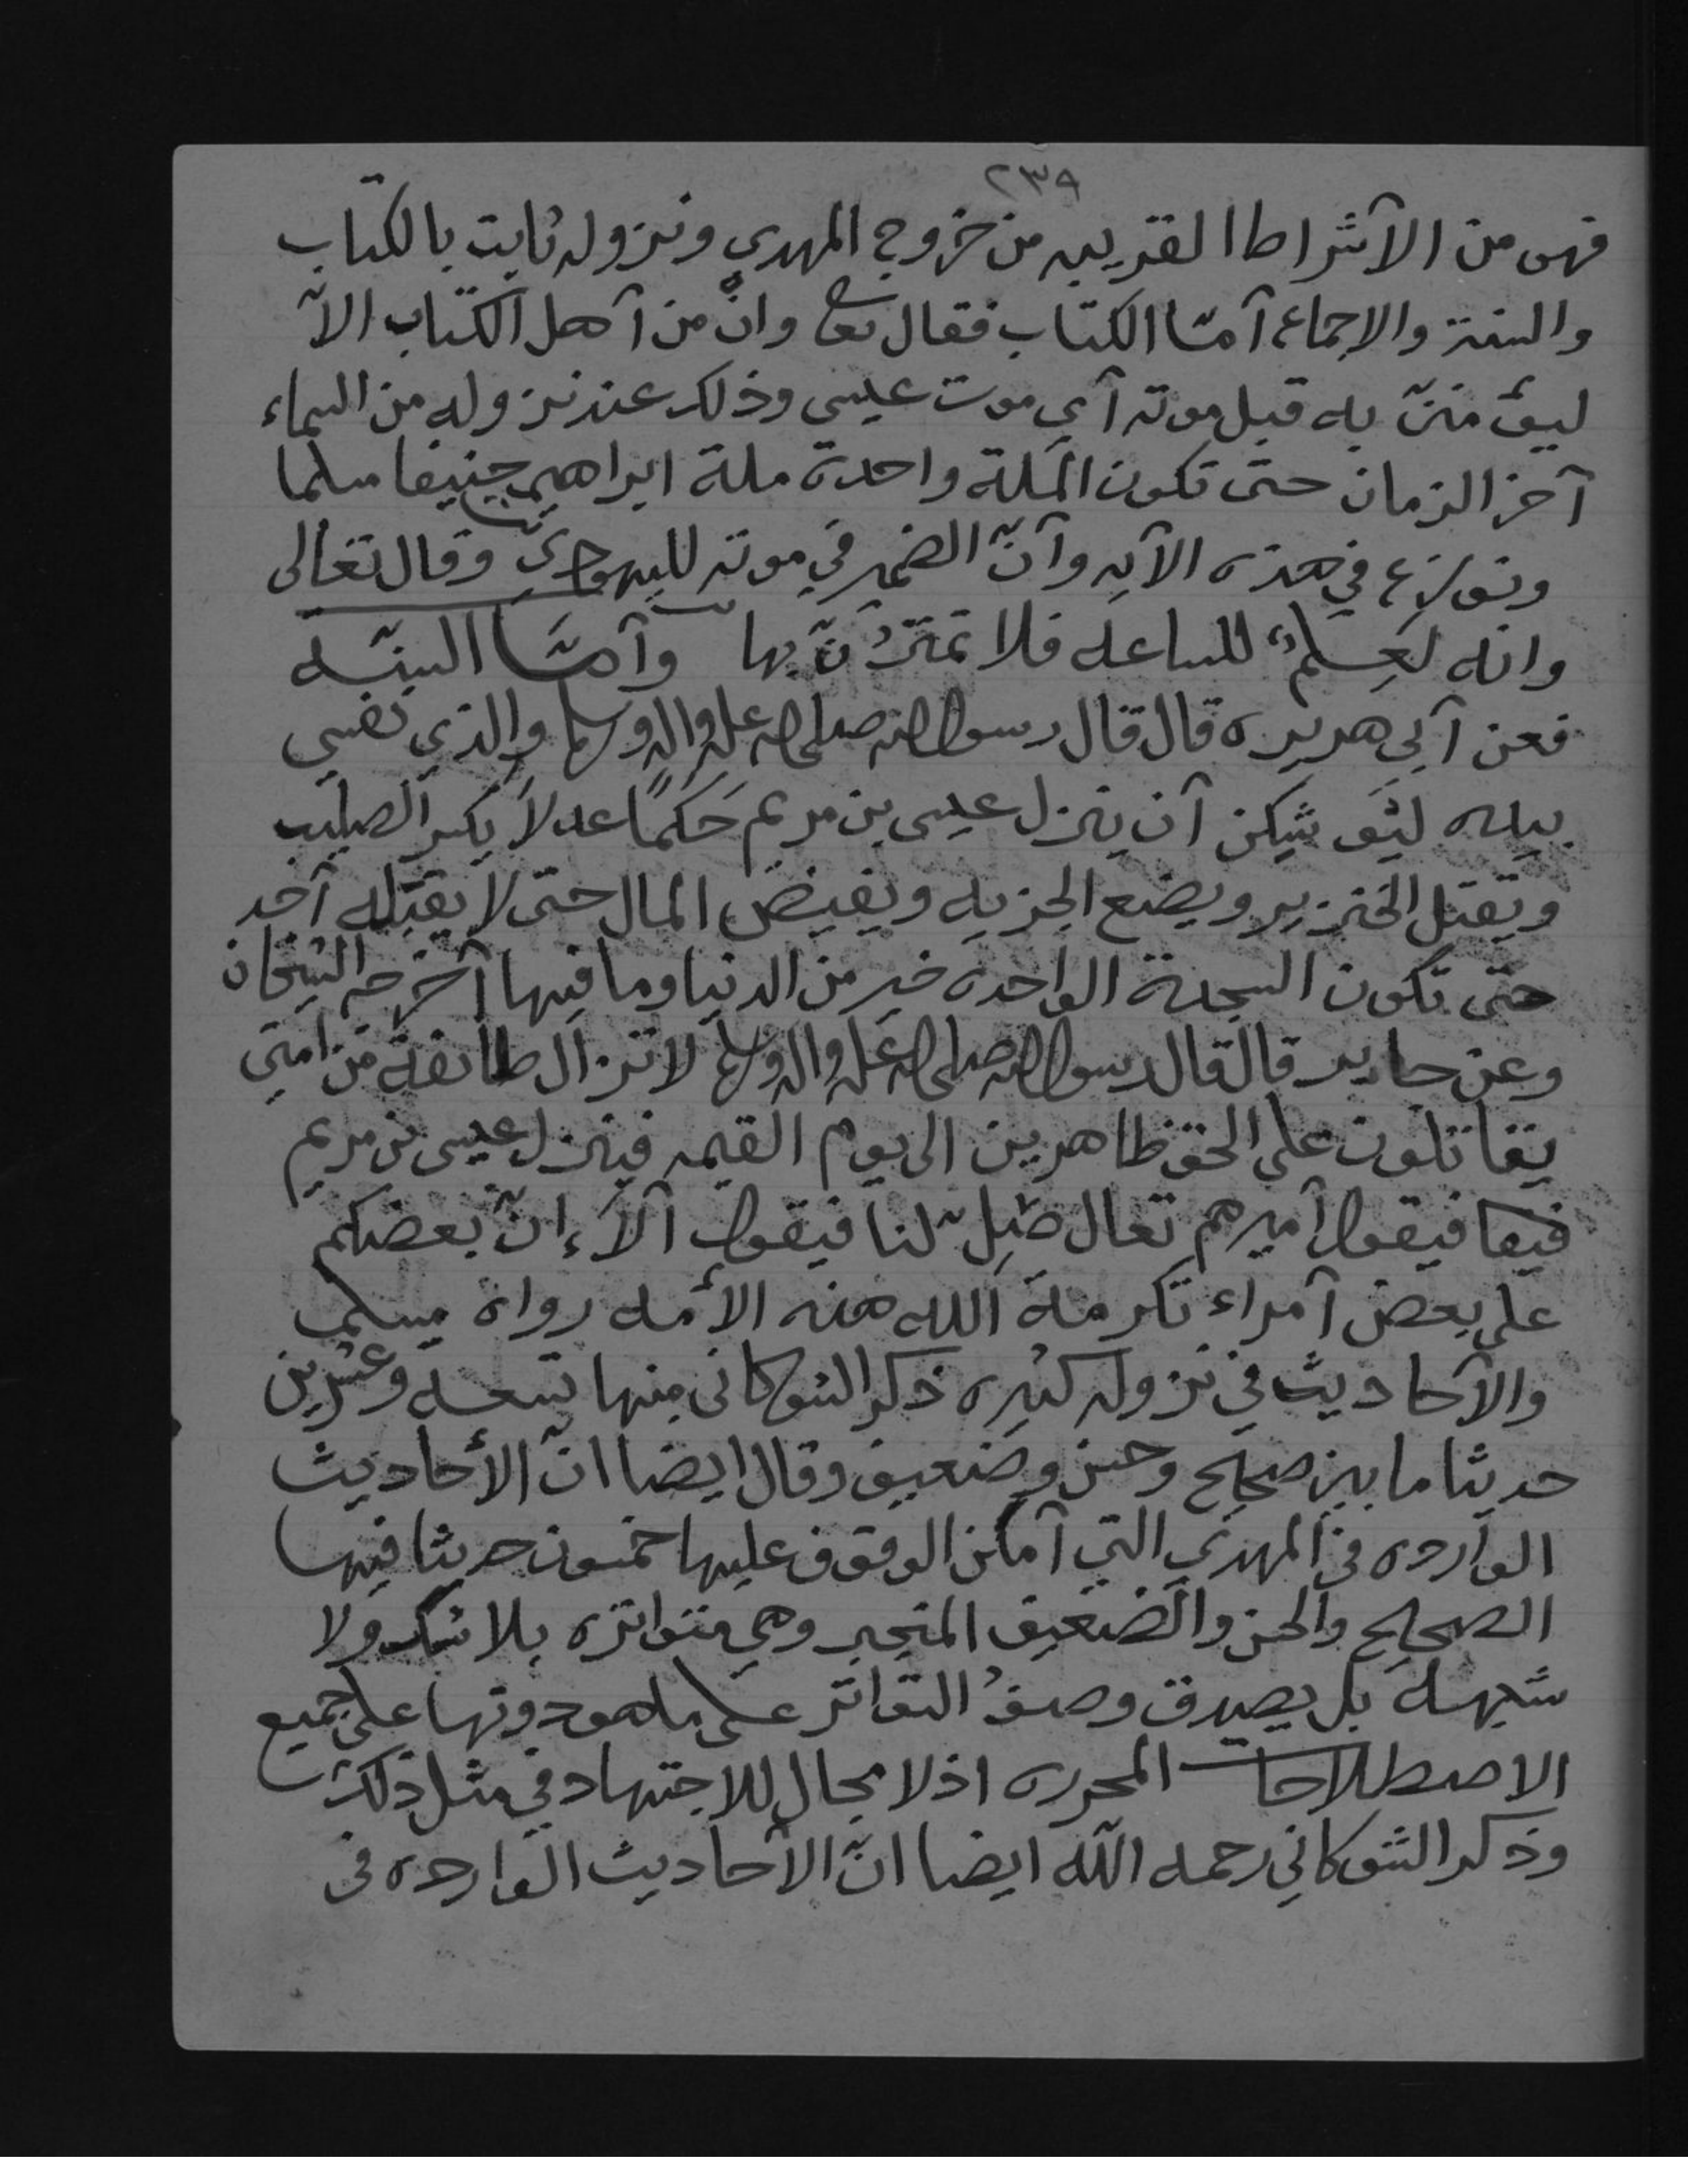 ٢٣٩
فهي من الآشراط القريبه من خروج المهدي ونزوله ثابت بالكتاب
والسنة والاجماع آمّا الكتاب فقال تعا وانْ من آهل الكتاب الآ
ليؤمننّ به قبل موته آي موت عيسى وذلك عند نزوله من السماء
آخر الزمان حتى تكون الملة واحدة ملة ابراهيم حنيفا مسلما
ونوزع في هذه الآيه وآنّ الضمير في موته لليهودي وقال تعالى
وانه لَعِلمٌ للساعه فلا تمترُنّ بها وآمّا السنّه
فعن آبي هريره قال قال رسول الله صلى الله عليه واله وسلم والذي نفسي
بيده ليَوشِكن آن ينزل عيسى بن مريم حَكَمًا عدلاً يكسر الصليب
ويقتل الخنزير ويضع الجزيه ويفيض المال حتى لا يقبله آحد
حتى تكون السجدة الواحده خير من الدنيا وما فيها آخرجه الشيخان
وعن جابر قال قال رسول الله صلى الله عليه واله وسلم لا تزال طائفة من امتي
يقاتلون على الحق ظاهرين الى يوم القيمه فينزل عيسى بن مريم
فيقول آميرهم تعال صَلِّ لنا فيقول آلآ إنّ بعضكم
على بعض آمراء تكرمة الله هذه الأمه رواه مسلم
والآحاديث في نزوله كثيره ذكر الشوكاني منها تسعه وعشرين
حديثا ما بين صحيح وحسن وضعيف وقال ايضا انّ الأحاديث
الوارده في المهدي التي آمكن الوقوف عليها خمسون حديثا فيها
الصحيح والحسن والضعيف المنجبر وهي متواتره بلا شك ولا
شبهه بل يصدق وصفُ التواتر على ما هو دونها على جميع
الاصطلاحات المحرره اذ لا مجال للاجتهاد في مثل ذلك
وذكر الشوكاني رحمه الله ايضا انّ الآحاديث الوارده في